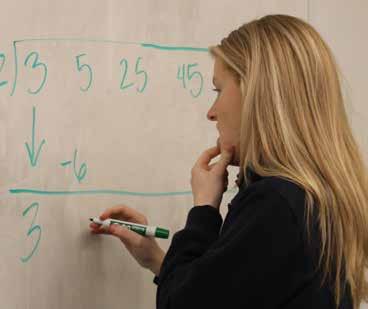 2) 3 5 25 45
-6
3